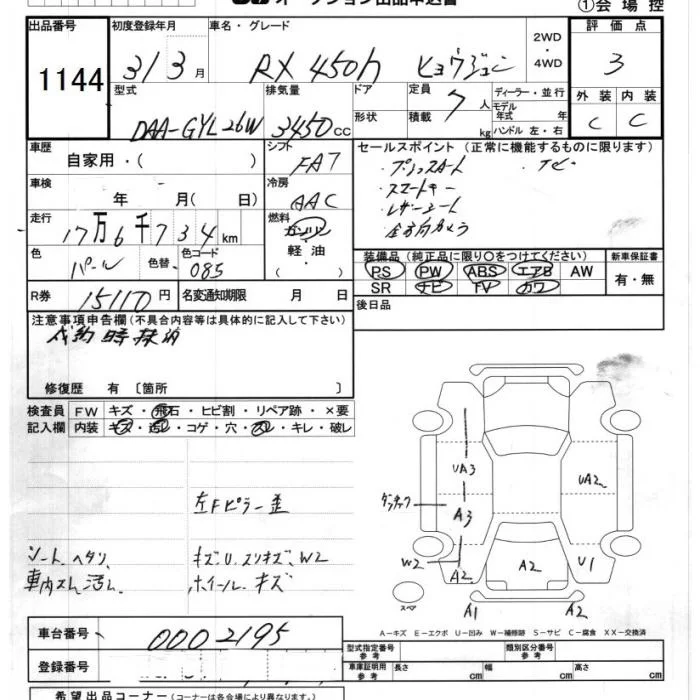 オークション出品申込書
①会場控
出品番号
1144
初度登録年月
31 3月
車名・グレード
RX 450h ヒョウジュン
2WD
・
4WD
評価点
3
外装 内装
C C
型式
DAA-GYL26W
排気量
3450cc
ドア
形状
定員
7人
積載
kg
ディーラー・並行
モデル年式 年
ハンドル 左・右
車歴
自家用・( )
シフト
FA7
セールスポイント (正常に機能するものに限ります)
・プッシュスタート
・スマートキー
・レザーシート
・全方向カメラ
・TV
車検
年 月( 日)
冷房
AAC
走行
17万6千734km
燃料
ガソリン
軽油
( )
色
パール
色替
色コード
085
装備品(純正品に限り○をつけてください)
PS PW ABS エアB AW
SR ナビ TV カワ
新車保証書
有・無
R券
15110円
名変通知期限 月 日
後日品
注意事項申告欄(不具合内容等は具体的に記入して下さい)
成約時抹消
修復歴 有〔箇所 〕
検査員
記入欄
FW キズ・飛石・ヒビ割・リペア跡・×要
内装 キズ・汚レ・コゲ・穴・スレ・キレ・破レ
左Fピラー歪
シートヘタリ
車内スレ汚レ
キズ、U、スリキズ、W2
ホイールキズ
UA3
UA2
A3
W2
A2
A2
U1
スペア
A1
A2
A-キズ E-エクボ U-凹み W-補修跡 S-サビ C-腐食 XX-交換済
車台番号
0002195
登録番号
型式指定番号
参考
類別区分番号
参考
車庫証明用
参考
長さ cm
幅 cm
高さ cm
希望出品コーナー(コーナーは各会場により異なります。)